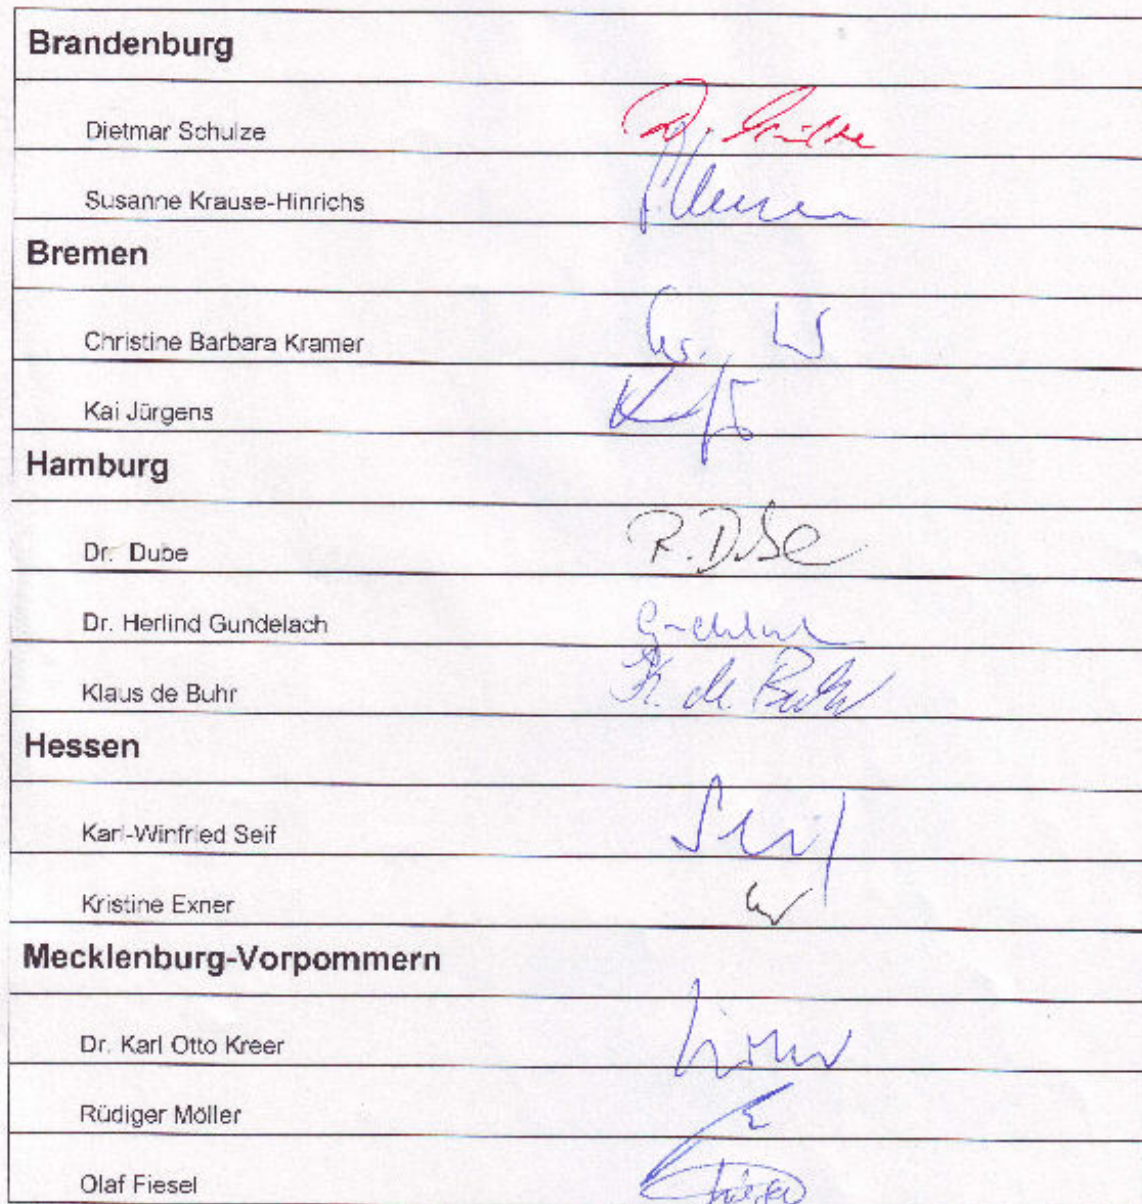 Brandenburg
Dietmar Schulze D. Schulze
Susanne Krause-Hinrichs
Bremen
Christine Barbara Kramer
Kai Jürgens
Hamburg
Dr. Dube R. Dube
Dr. Herlind Gundelach
Klaus de Buhr K. de Buhr
Hessen
Karl-Winfried Seif Seif
Kristine Exner
Mecklenburg-Vorpommern
Dr. Karl Otto Kreer
Rüdiger Möller
Olaf Fiesel